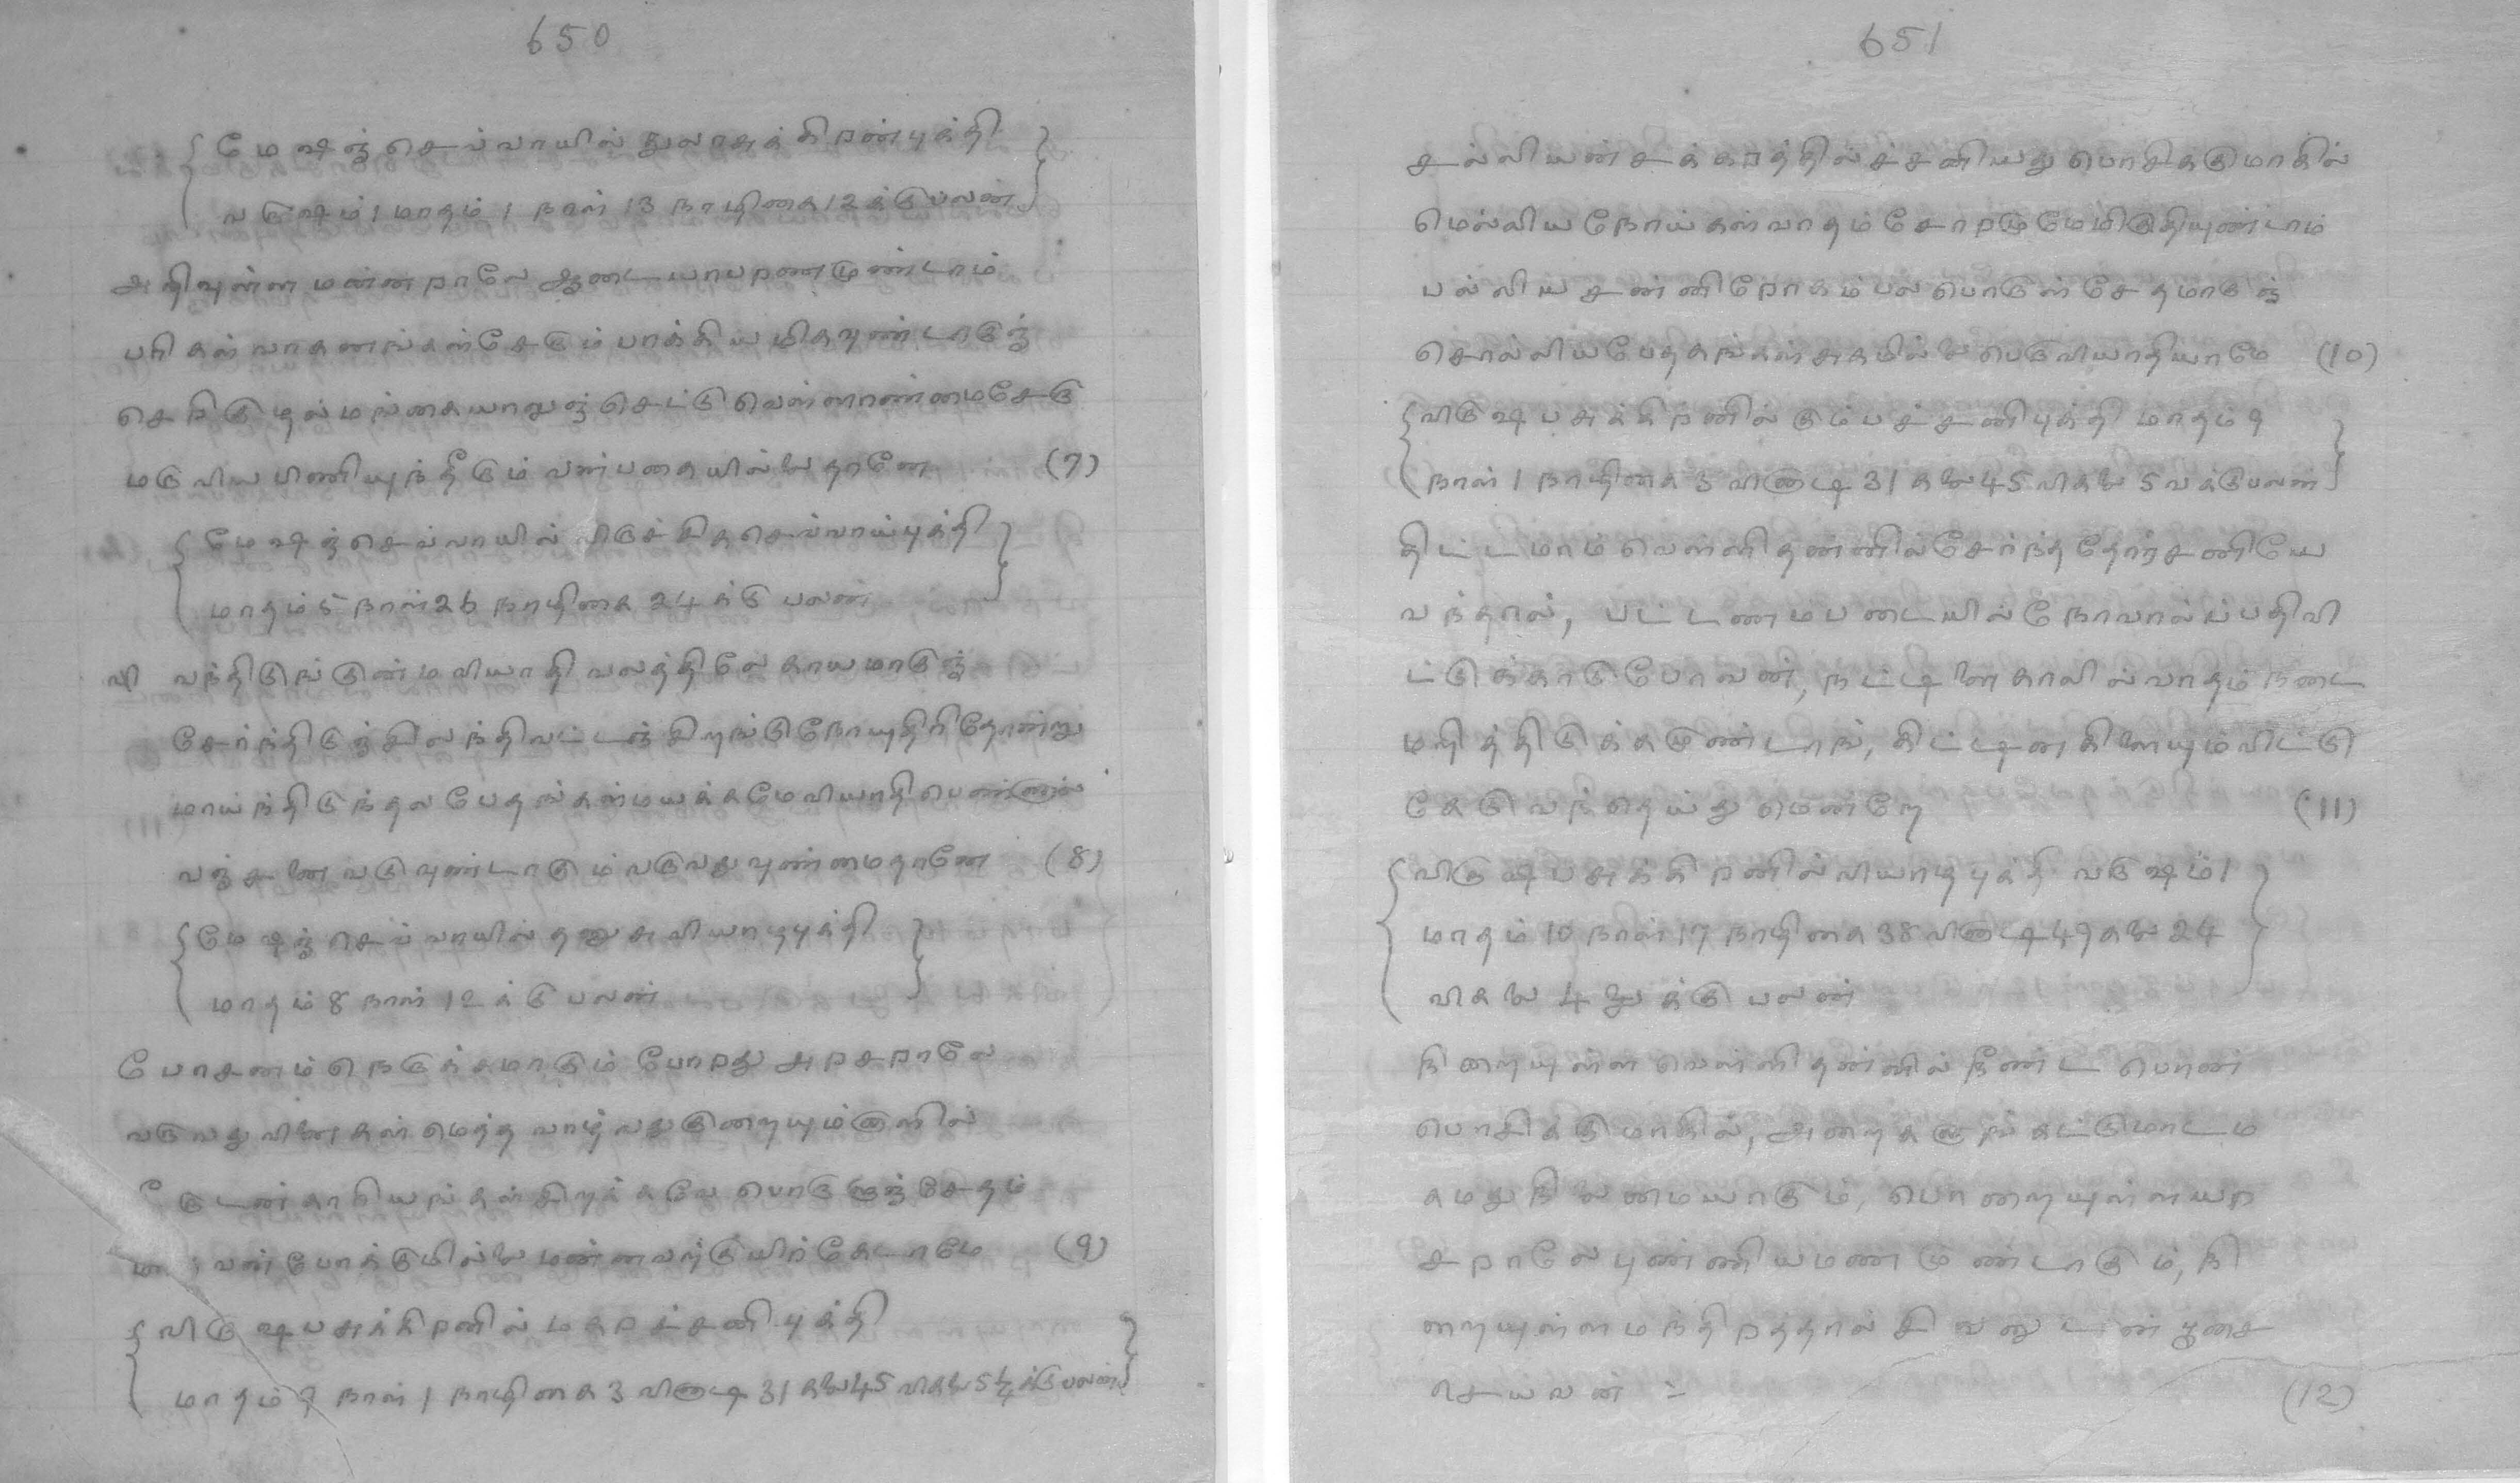 650
{ மேஷஞ்செவ்வாயில் துலாசுக்கிறன்புத்தி }
{ வருஷம் 1 மாதம் 1 நாள் 13 நாழிகை 12 க்கு பலன் }
அறிவுள்ள மன்னறாலே ஆடையாபறணமுண்டாம்
பரிகள் வாகனங்கள்சேரும் பாக்கிய மிகவுண்டாகுஞ்
செறிகுழல்மங்கையாலுஞ் செட்டு வெள்ளாண்மைசேரு
மருவிய பிணியுந்தீரும் வன்பகையில்லைதானே (7)
{ மேஷஞ்செவ்வாயில் விருச்சிகசெவ்வாய்புத்தி }
{ மாதம் 5 நாள் 26 நாழிகை 24 க்கு பலன் }
வி வந்திடுங்குன்மவியாதி வலத்திலே காயமாகுஞ்
சேர்ந்திடுஞ்சிலந்திவட்டஞ் சிறங்குநோயுதிரிதோன்று
மாய்ந்திடுந்தல பேதங்கள்மயக்கமேவியாதிபெண்ணால்
வஞ்சனைவடுவுண்டாகும் வருவதுவுண்மைதானே (8)
{ மேஷஞ் செவ்வாயில் தனுசுவியாழபுத்தி }
{ மாதம் 8 நாள் 12 க்கு பலன் }
போசனம் நெருக்கமாகும் போறது அறசறாலே
வருவதுவினைகள் மெத்த வாழ்வதுகுறையும்ருளில்
டேருடன்காரியங்கள்சிறுக்கவே பொருளுஞ்சேதம்
வன்போக்குமில்லை மன்னவற்குயிர்கேடாமே (9)
{ விருஷபசுக்கிறனில் மகறச்சனி புத்தி }
{ மாதம் 9 நாள் 1 நாழிகை 3 விநாடி 31 கலை45 விகலை 5¼க்கு பலன் }
651
சல்லியன்சக்கறத்தில்ச்சனியது பொசிக்குமாகில்
மெல்லியநோய்கள்வாதம்சோறமுமேமிகுதியுண்டாம்
பல்லியசன்னிறோகம்பல பொருள் சேதமாகுஞ்
சொல்லியபேதகங்கள் சுகமில்லை பெருவியாதியாமே (10)
{ விருஷபசுக்கிறனில் கும்பச்சனிபுத்தி மாதம் 9 }
{ நாள் 1 நாழிகை 3 விநாடி 31 கலை 45 விகலை 5 வக்குபலன் }
திட்டமாம் வெள்ளி தன்னில்சேர்ந்ததோர்சனியே
வந்தால், பட்டணமபடையில்நோவால்ப்பதிவி
ட்டுக்காடுபோவன், நட்டினகாலில்வாதம் நடை
மறித்திடுக்கமுண்டாங், கிட்டினகிளையும்விட்டு
கேடுவந்தெய்து மென்றே (11)
{ விருஷபசுக்கிறனில்வியாழபுத்தி வருஷம் 1 }
{ மாதம் 10 நாள் 17 நாழிகை 38 விநாடி49கலை 24 }
{ விகலை 4லுக்கு பலன் }
நிறையுள்ள வெள்ளிதன்னில் நீண்ட பொன்
பொசிக்குமாகில், அறைகளுங்கட்டுமாடம
கமதுநிலமையாகும், பொறையுள்ளயற
சறாலேபுண்ணியமணமுண்டாகும், நி
றையுள்ளமந்திறத்தால்சிவனுடன் பூசை
செய்வன் :- (12)